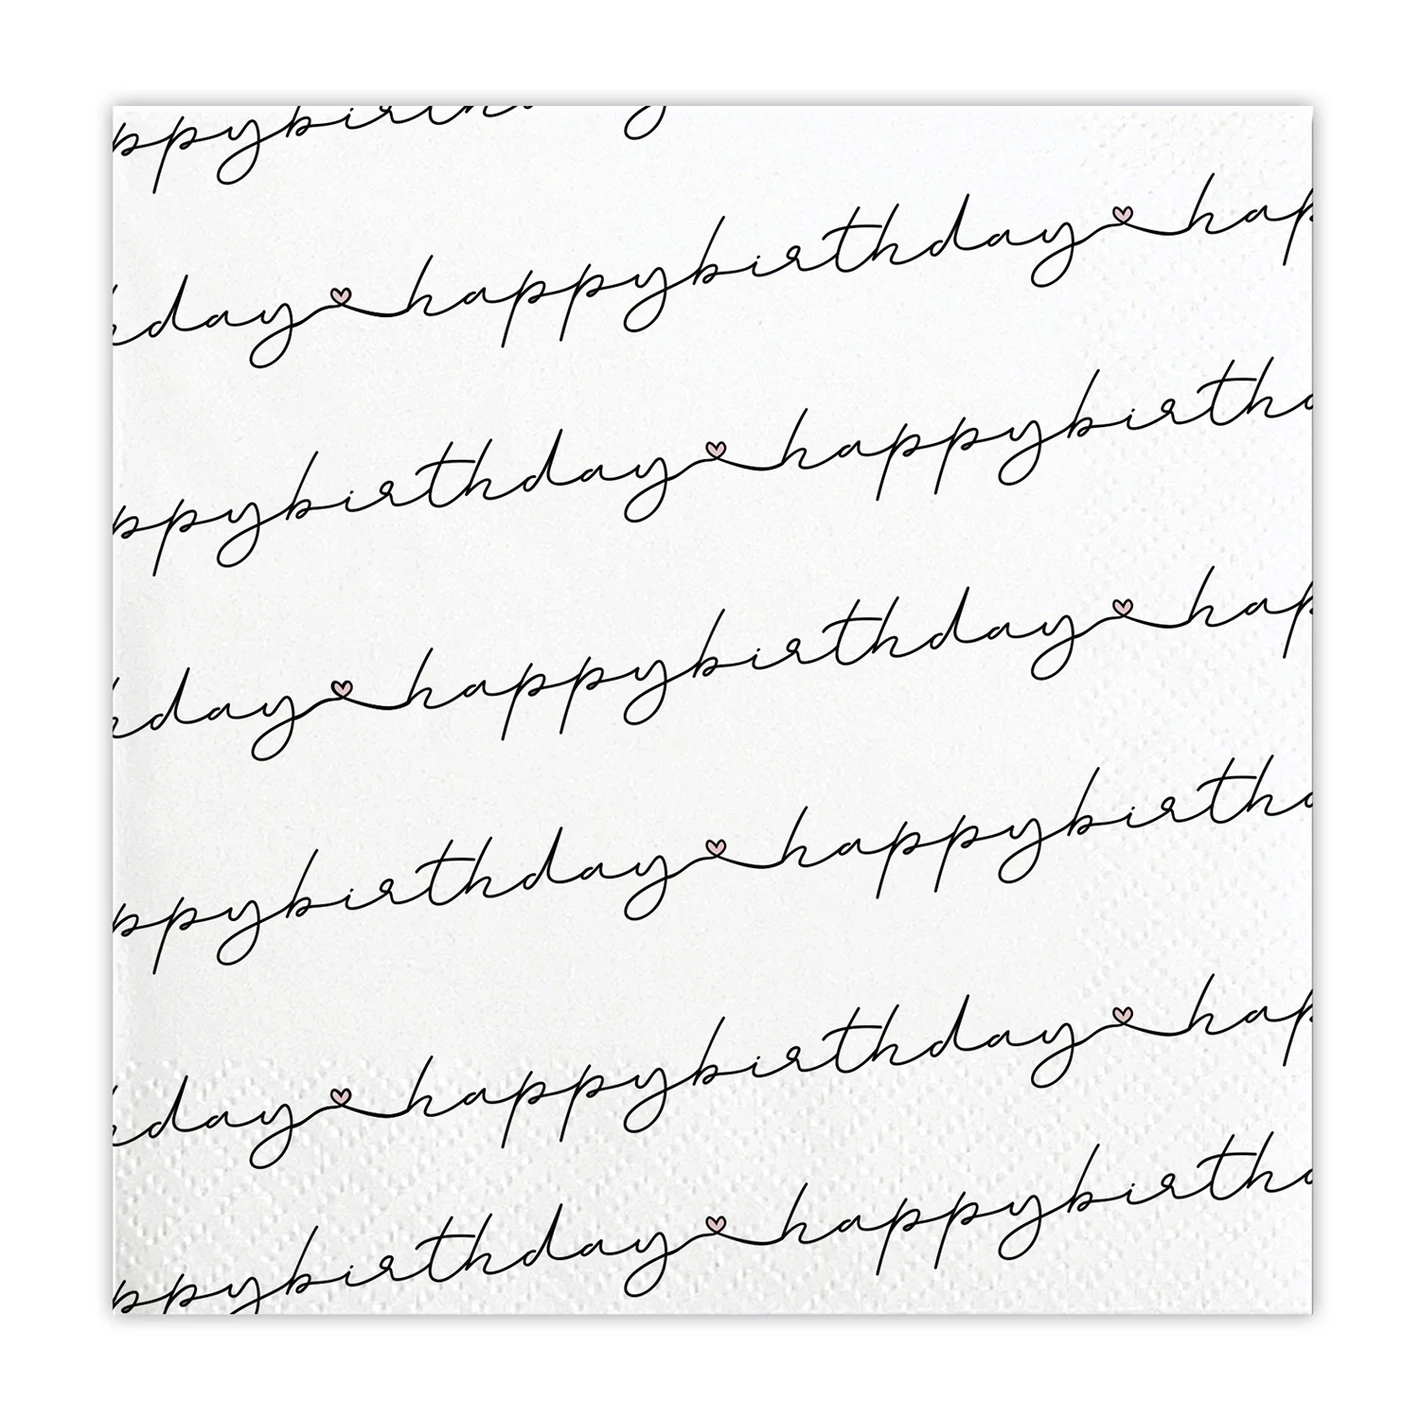 ppybirth y
day happybirthday hap
ppybirthday happybirthd
day happybirthday hap
ppybirthday happybirthd
day happybirthday hap
ppybirthday happybirthd